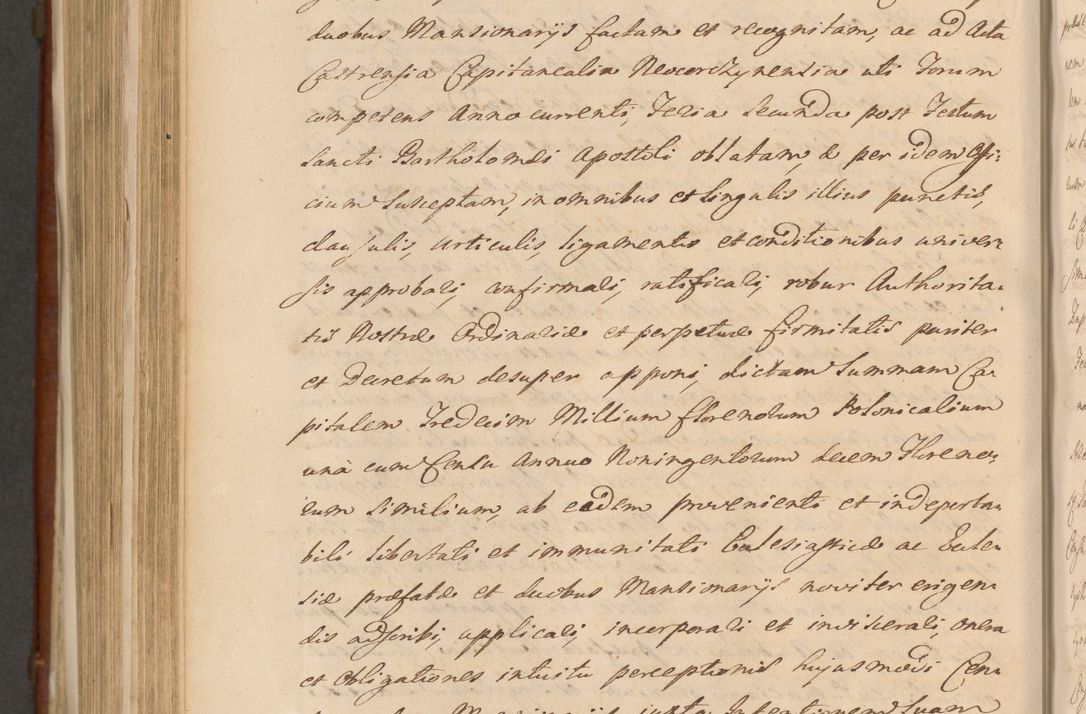 duobus Mansionarijs factam et recognitam, ac ad Acta
Castrensia Capitanealia Neocorczynensia uti Forum
competens Anno currenti, Feria Secunda post Festum
Sancti Bartholomæi Apostoli oblatam, & per idem Offi-
cium Susceptam, in omnibus et Singulis illius punctis,
clausulis, articulis, ligamentis et conditionibus univer-
sis approbari, confirmari, ratificari, robur Authorita-
tis Nostræ Ordinariæ et perpetuæ firmitatis pariter
et Decretum desuper apponi, dictam Summam Ca-
pitalem Tredecim Millium florenorum Polonicalium
una cum Censu Annuo Noningentorum decem Floreno-
rum Similium, ab eadem provenienti et indeperta-
bili libertati et immunitati Ecclesiasticæ ac Eccle-
siæ præfatæ et duobus Mansionarijs noviter erigen-
dis adscribi, applicari, incorporari et inviscerari, onera
et obligationes intuitu perceptionis hujusmodi Cen-
Mansionarijs juxta Intentionem Suam